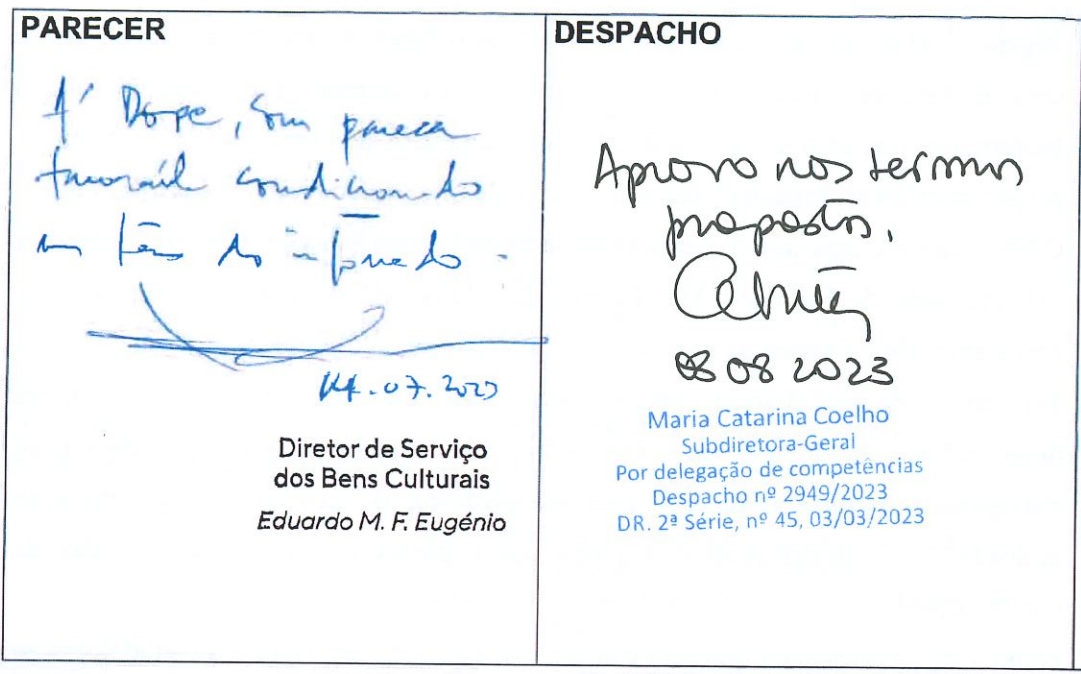 PARECER
À DGPC, com parecer
favorável condicionado
nos termos do informado.
14.07.2023
Diretor de Serviço
dos Bens Culturais
Eduardo M. F. Eugénio
DESPACHO
Aprovo nos termos
propostos.
08 08 2023
Maria Catarina Coelho
Subdiretora-Geral
Por delegação de competências
Despacho nº 2949/2023
DR. 2ª Série, nº 45, 03/03/2023